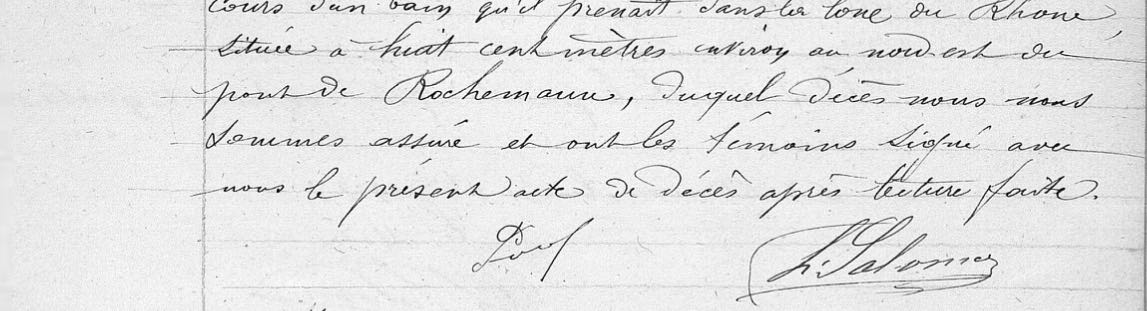 cours d'un bain qu'il prenait dans la lône du Rhône
située à huit cent mètres environ au nord-est du
pont de Rochemaure, duquel décès nous nous
sommes assuré et ont les témoins signé avec
nous le présent acte de décès après lecture faite.
L. Salomon